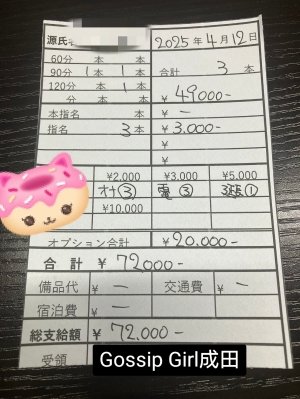 源氏名 2025年4月12日
60分 本 本
90分 1本 1本 合計 3本
120分 1本 本
分 本 本 ¥49000-
本指名 本 ¥ー
指名 3本 ¥3,000-
¥
¥2,000 ¥3,000 ¥5,000
オナ③ 電③ ①
¥10,000
オプション合計 ¥20.000-
合計 ¥72000-
備品代 ¥ー 交通費 ¥ー
宿泊費 ¥ー
総支給額 ¥72.000-
受領
Gossip Girl成田